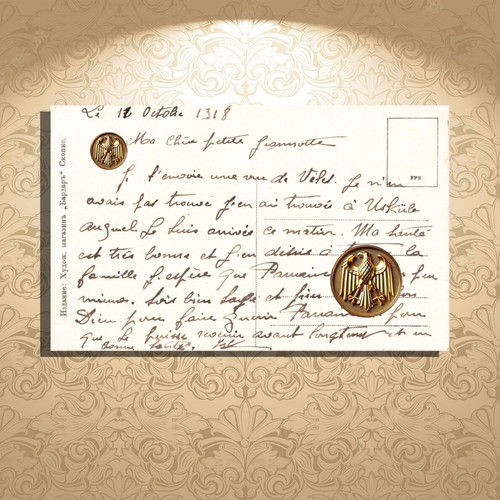 Le 12 Octobre 1918
Ma chère petite Jeannette
Je t'envoie une vue de Vélès. Je n'en
avais pas trouvé j'en ai trouvé à Uskub
auquel je suis arrivés ce matin. Ma santé
est très bonne et j'en désire à la
famille j'espère que Maman peu
mieux. Sois bien sage et bien
Dieu pour faire guérir Maman pour
que je puisse revenir avant longtemps et en
bonne santé.
Издание: Худож. магазинъ „Вардаръ“ Скопие.
FPS